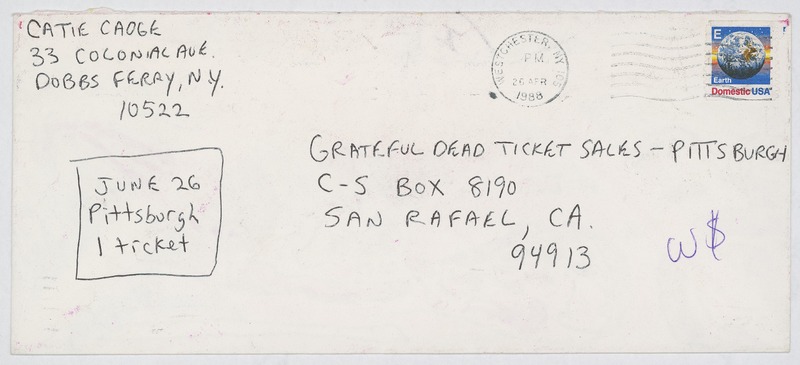 CATIE CAOGE
33 COLONIAL AVE.
DOBBS FERRY, N.Y.
10522
WESTCHESTER, NY 105
PM
26 APR
1988
E
Earth
Domestic USA
GRATEFUL DEAD TICKET SALES - PITTSBURGH
C-S BOX 8190
SAN RAFAEL, CA.
94913
JUNE 26
Pittsburgh
1 ticket
W$